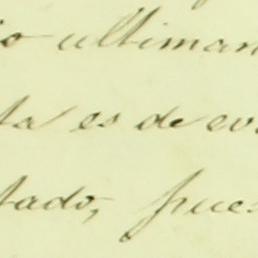 io ultiman
ta es de evi
tado, pues